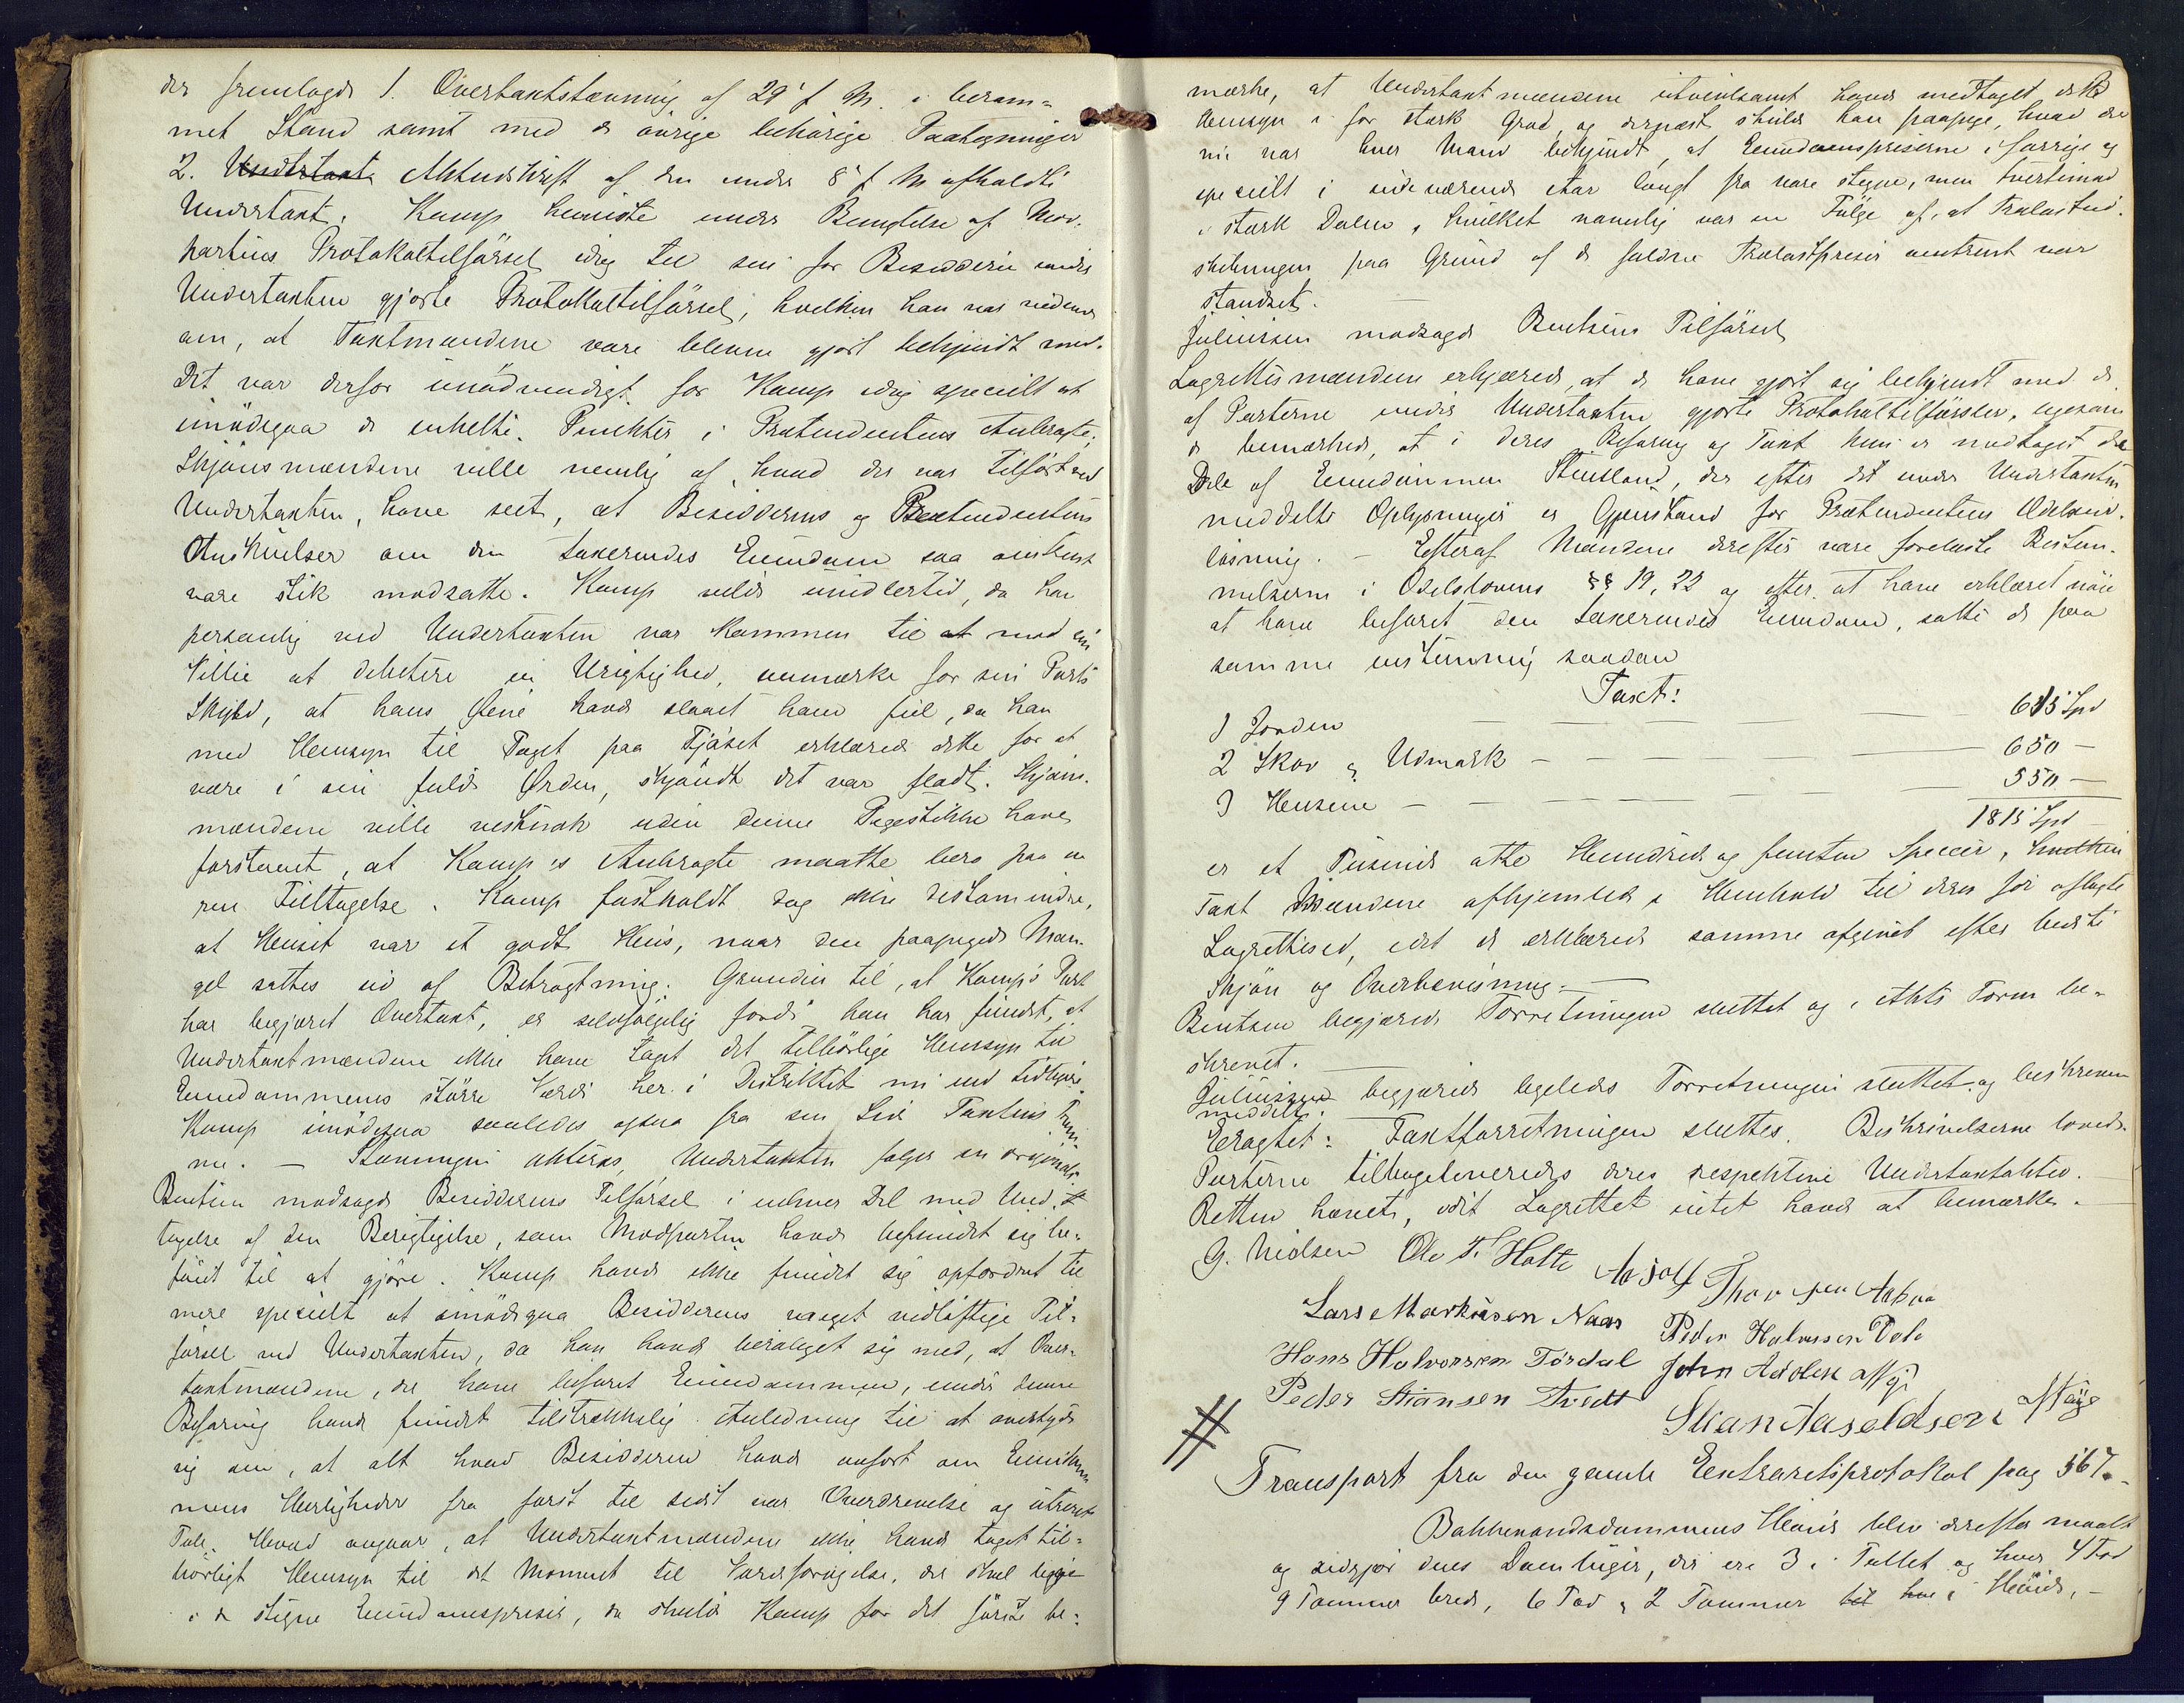 der fremlagde 1. Overtaxtstævning af 29' f. M. i beram-
met Stand samt med de øvrige behørige Paategninger
2. Undertaxts Aktudskrift af den under 8' f M afholdte
Undertaxt. Kamp henviste under Benægtelse af Mod-
partens Protokoltilførsel idag til sin for Besidderen under
Undertaxten gjorte Protokoltilførsel, hvilken han var vidende
om, at Taxtmændene vare blevne gjort bekjendt med.
Det var derfor unødvendigt for Kamp idag specielt at
imødegaa de enkelte Punkter i Prætendentens Anbragte;
Skjønsmændene ville nemlig af, hvad der var tilført ved
Undertaxten, have seet, at Besidderens og Prætendentens
Anskuelser om den taxerendes Eiendom saa omtrent
vare stik modsatte. Kamp vilde imidlertid, da han
personlig ved Undertaxten var kommen til at mod sin
Villie at debitere en Urigtighed, bemærke for sin Parts
Skyld, at hans Øine havde slaaet ham feil, da han
med Hensyn til Taget paa Fjøset erklærede dette for at
være i sin fulde Orden, skjøndt det var fladt. Skjøns-
mændene ville vistnok uden denne Tagestikke have
forstaaet, at Kamps Anbragte maatte bero paa en
ren Feiltagelse. Kamp fastholdt dog ikke destomindre,
at Huset var et godt Huus, naar den paapegede Man-
gel sattes ud af Betragtning. Grunden til, at Kamps Part
har begjæret Overtaxt, er selvfølgelig fordi han har fundet, at
Undertaxtmændene ikke have taget det tilbørlige Hensyn til
Eiendommenes større Værdi her i Distriktet nu end tidligere.
Kamp imødesaa saaledes ogsaa fra sin Side Taxtens Frem-
me. — Stævningen akteres, Undertaxten følger in originali.
Bentsen modsagde Besidderens Tilførsel i enhver Del med Und-
tagelse af den Berigtigelse, som Modparten havde befundet sig be-
føiet til at gjøre. Kamp havde ikke fundet sig opfordret til
mere specielt at imødegaa Besidderens meget vidløftige Til-
førsel ved Undertaxten, da han havde beroliget sig med, at Over-
taxtmændene, der have befaret Eiendommen, under denne
Befaring havde fundet tilstrækkelig Anledning til at overtyde
sig om, at alt hvad Besidderen havde anført om Eiendom-
mens Herligheder fra først til sidst var Overdrevelse og
Tale. Hvad angaar, at Undertaxtmændene ikke havde taget til-
børligt Hensyn til det Moment til Værdiforøgelse, der skal ligge
i de stigne Eiendomspriser, da skulde Kamp for det første be-
mærke, at Undertaxtmændene utvivlsomt havde medtaget dette
Hensyn i for stærk Grad, og dernæst skulde han paapege, hvad der
nu var hver Mand bekjendt, at Eiendomspriserne i forrige og
specielt i indeværende Aar langt fra vare stegne, men tvertimod
i stærk Dalen, hvilket navnlig var en Følge af, at Trælastud-
skibningen paa Grund af de faldne Trælastpriser omtrent var
standset.
Juliussen modsagde Bentsens Tilførsel
Lagrettesmændene erklærede, at de have gjort sig bekjendt med de
af Parterne under Undertaxten gjorte Protokoltilførsler, ligesom
de bemærkede, at i deres Befaring og Taxt kun er medtaget den
Del af Eiendommen Stensland, der efter det under Undertaxten
meddelte Oplysninger er Gjenstand for Prætendentens Odelsind-
løsning. — Efterat Mændene derefter vare forelæste Bestem-
melserne i Odelslovens §§ 19, 22 og efter at have erklæret nøie
at have befaret den taxerendes Eiendom, satte de paa
samme enstemmig saadan
Taxt:
1 Jorden — — — — 615 Spd
2 Skov og Udmark — — — — 650 —
3 Husene — — — — 550 —
1815 Spd
er et Tusinde otte Hundrede og femten Specier, hvilken
Taxt Mændene afhjemlede i Henhold til deres før aflagte
Lagrettesed, idet de erklærede samme afgivet efter bedste
Skjøn og Overbevisning. —
Bentsen begjærede Forretningen sluttet og i Akts Form be-
skrevet.
Juliussen begjærede ligeledes Forretningen sluttet og beskreven
meddelt.
Eragtet: Taxtforretningen sluttes. Beskrivelserne loves.
Parterne tilbageleveredes deres respektive Undertaxtakter.
Retten hævet, idet Lagrettet intet havde at bemærke. —
G. Nielsen Ole T. Holte
Lars Markusen Naas Peder Halvorsen Dale
Hans Halvorsen Tørdal
Peder Stiansen Tvedt
Stian Aaseldsen
Transport fra den gamle Extraretsprotokol pag 567.
Bakkevandsdammens Høide blev derefter maalt
og udgjør dens Damluger, der ere 3 i Tallet og hver 4 Fod
9 Tommer bred, 6 Fod og 2 Tommer i Høide, —